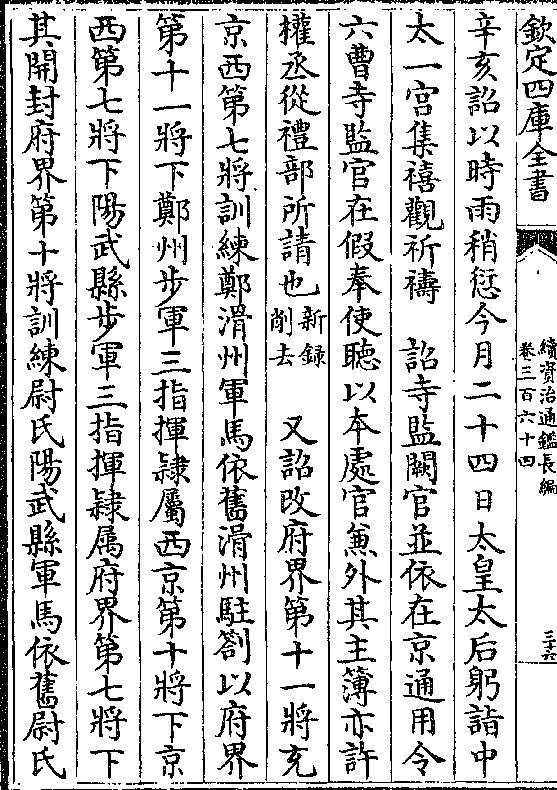 欽定四庫全書
續資治通鑑長編
卷三百六十四
三十六
辛亥詔以時雨稍愆今月二十四日太皇太后躬詣中
太一宫集禧觀祈禱　詔寺監闕官並依在京通用令
六曹寺監官在假奉使聽以本處官兼外其主簿亦許
權丞從禮部所請也新録削去　又詔改府界第十一將充
京西第七將訓練鄭滑州軍馬依舊滑州駐劄以府界
第十一將下鄭州步軍三指揮隸屬西京第十將下京
西第七將下陽武縣步軍三指揮隸属府界第七將下
其開封府界第十將訓練尉氏陽武縣軍馬依舊尉氏